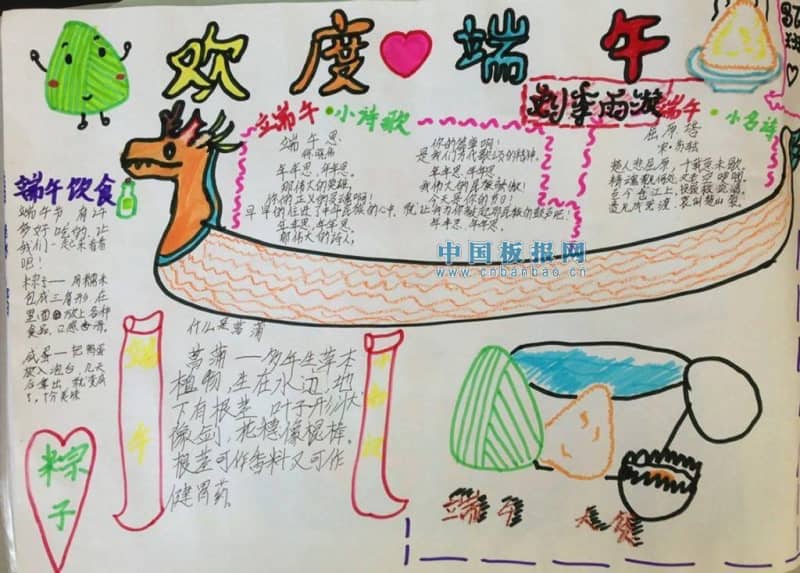 欢度端午
刘季雨濛
37
班
立端午·小诗歌
端午思
年年思,年年思。
那伟大的英雄,
你的正义的灵魂啊!
年年思,年年思。
那伟大的诗人,
你的简章啊!
是我们万代歌颂的精神。
年年思,年年思。
我伟大的屈原骄傲!
今天是你的节日!
年年思,年年思。
端午·小名诗
屈原塔
宋·苏轼
楚人悲屈原,千载意未歇。
精魂飘何处,父老空哽咽。
至今仓江上,投饭救饥渴。
遗风成竞渡,哀叫楚山裂。
中国板报网
www.cnbanbao.cn
端午饮食
端午节有许
多好吃的,让
我们一起来看看
吧!
粽子——用糯米
包成三角形,在
里面放上各种
食品,口感香滑。
咸蛋——把鸭蛋
放入泡台,几天
后拿出,就变成
了,个美味
粽子
端午
什么是菖蒲
菖蒲——多年生草本
植物,生在水边,地
下有根茎,叶子形状
像剑,花穗像棍棒。
根茎可作香料又可作
健胃药
端午